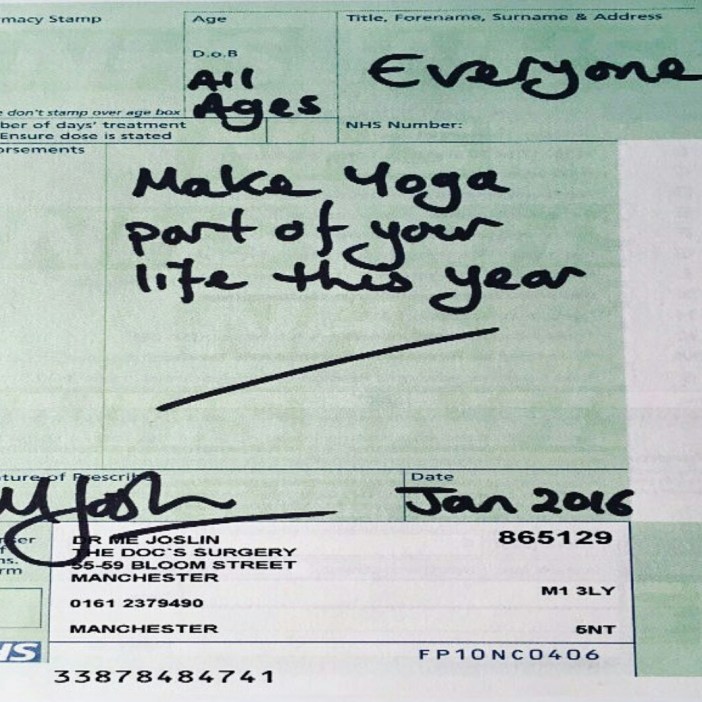 macy Stamp
Age
Title, Forename, Surname & Address
D.o.B
All
Ages
Everyone
e don't stamp over age box
ber of days' treatment
Ensure dose is stated
NHS Number:
orsements
Make Yoga
part of your
life this year
ature of Prescrib
Date
Jan 2016
DR ME JOSLIN
865129
THE DOC`S SURGERY
55-59 BLOOM STREET
MANCHESTER
M1 3LY
0161 2379490
MANCHESTER
5NT
FP10NC0406
HS
33878484741